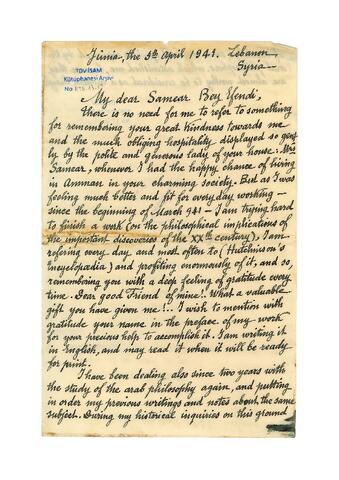 Jiunia, the 5th April 1941. Lebanon,
Syria.
TDV İSAM
Kütüphanesi Arşivi
No
My dear Samear Bey Efendi,
There is no need for me to refer to something
for remembering your great kindness towards me
and the much obliging hospitality displayed so gent-
ly by the polite and generous lady of your house: Mrs
Samear, whenever I had the happy chance of living
in Amman in your charming society. But as I was
feeling much better and fit for everyday working –
since the beginning of March 941 – I am trying hard
to finish a work (on the philosophical implications of
the important discoveries of the XXth century). I am
refering every day, and most often to (Hutchinson's
Encyclopædia) and profiting enormously of it, and so,
remembering you with a deep feeling of gratitude every
time. Dear good Friend of mine!.. What a valuable
gift you have given me!.. I wish to mention with
gratitude your name in the preface of my work
for your precious help to accomplish it. I am writing it
in English, and may read it when it will be ready
for print.
I have been dealing also since two years with
the study of the arab philosophy again, and putting
in order my previous writings and notes about the same
subject. During my historical inquiries on this ground